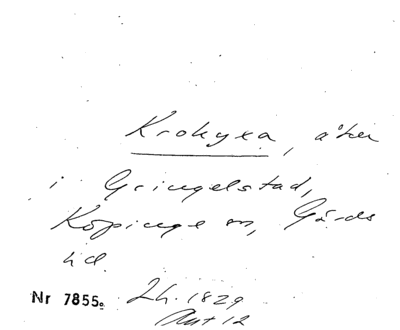 Krokyxa, åker
i Gringelstad,
Köpinge sn, Gärds
hd.
Nr 7855. Lh. 1829
Akt 12